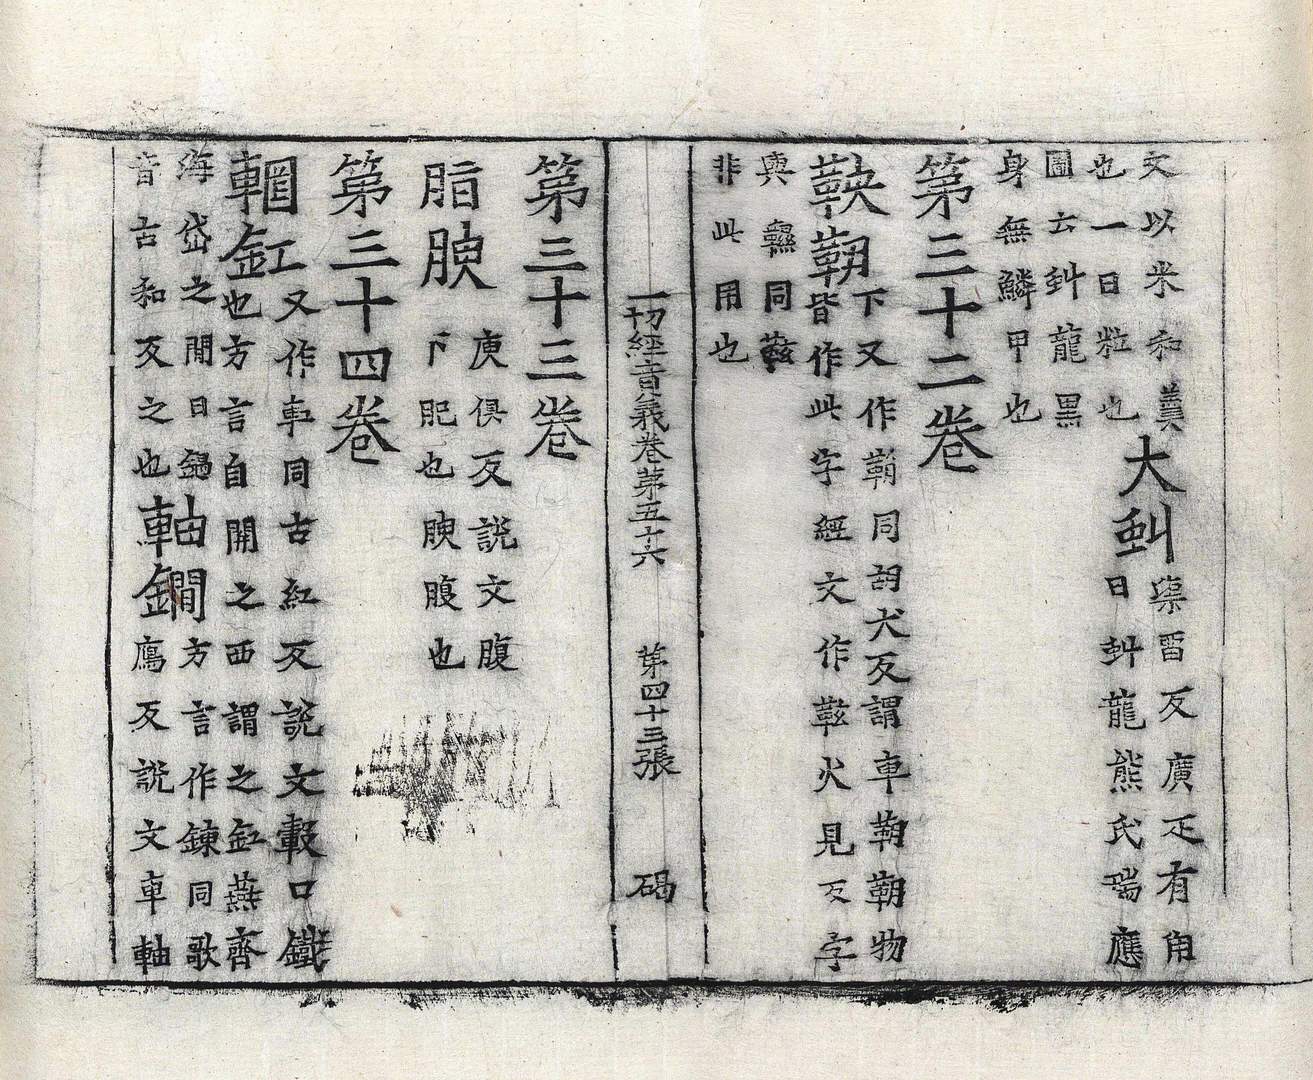 文以米和羹
也一曰粒也
大虯
渠留反廣疋有角
曰虯龍熊氏瑞應
圖云虯龍黑
身無鱗甲也
第三十二卷
鞅靷
下又作鞙同胡犬反謂車靷靷物
皆作此字經文作火見反字
與韅同
非此用也
一切經音義卷第五十六 第四十三張 碣
第三十三卷
脂腴
庾俱反說文腹
下肥也腴腹也
第三十四卷
輞釭
又作同古紅反說文轂口鐵
也方言自關之西謂之釭燕齊
海岱之間曰鍋
音古和反之也
軸鐧
方言作鍊同歌
鴈反說文車軸